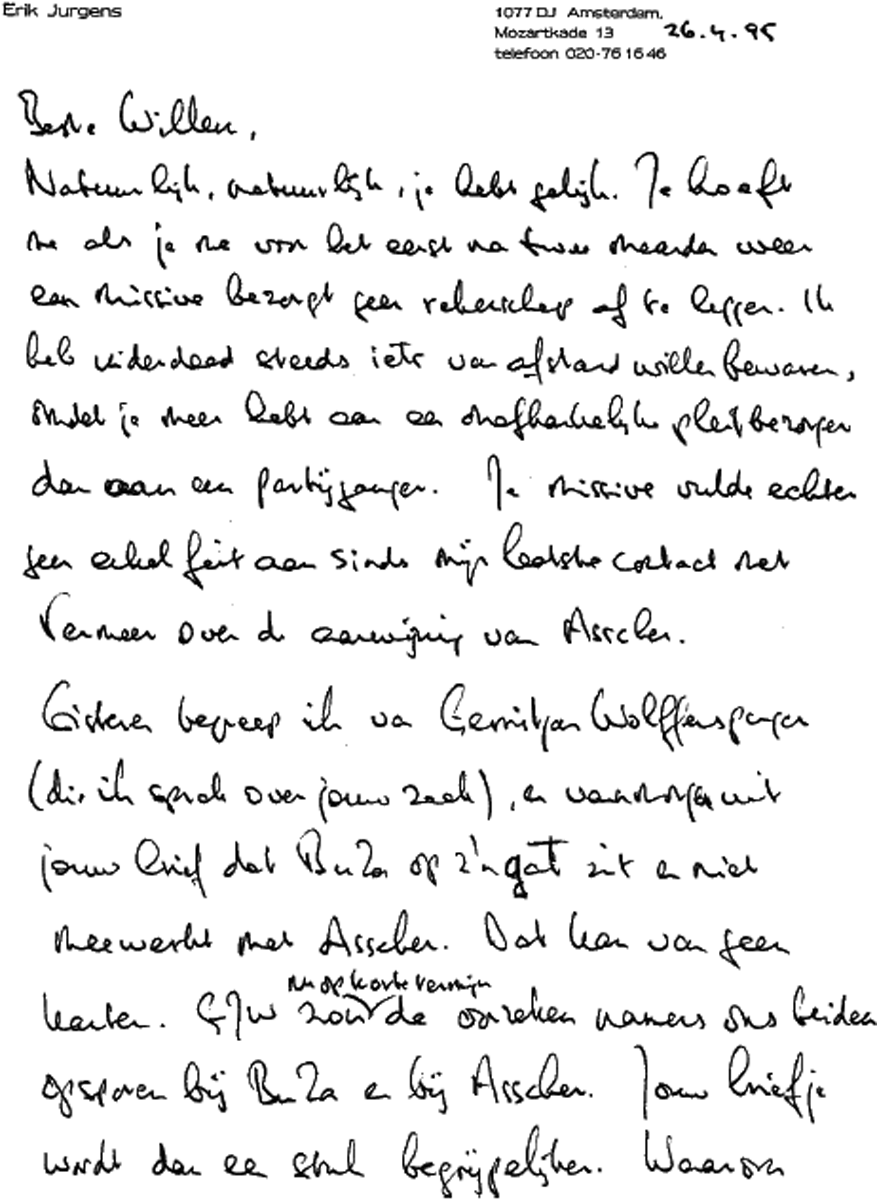 Erik Jurgens
1077 DJ Amsterdam,
Mozartkade 13 26.4.95
telefoon 020-76 16 46
Beste Willem,
Natuurlijk, natuurlijk, je hebt gelijk. Je hoeft
me als je me voor het eerst na twee maanden weer
een missive bezorgt geen rekenschap af te leggen. Ik
heb inderdaad steeds iets van afstand willen bewaren,
omdat je meer hebt aan een onafhankelijke pleitbezorger
dan aan een partijganger. Je missive vulde echter
geen enkel feit aan sinds mijn laatste contact met
Vermeer over de aanwijzing van Asscher.
Gisteren begreep ik van Gerritjan Wolffensperger
(die ik sprak over jouw zaak), en vanmorgen uit
jouw brief dat BuZa op z'n gat zit en niet
meewerkt met Asscher. Dat kan van geen
kanten. GJW zou de oorzaken namens ons beiden
nu op korte termijn
opsporen bij BuZa en bij Asscher. Jouw briefje
wordt dan een stuk begrijpelijker. Waarom